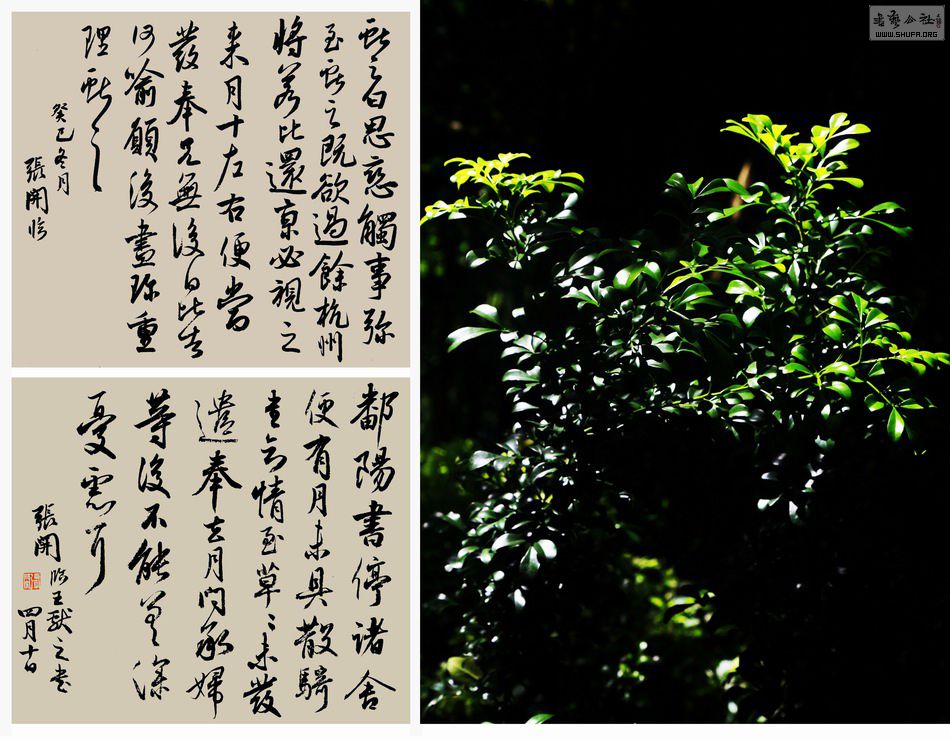 獻之白思戀觸事弥
至獻之既欲過餘杭州
將若比還京必視之
來月十左右便當
發奉見無復日比告
何喻願復盡珍重
理獻之
癸巳冬月
張開臨
鄱陽書停諸舍
便有月未具散騎
書知情至草〻未發
遣奉去月問承婦
等復不能差深
憂慮耳
張開臨王獻之書
四月十日
書藝公社
WWW.SHUFA.ORG